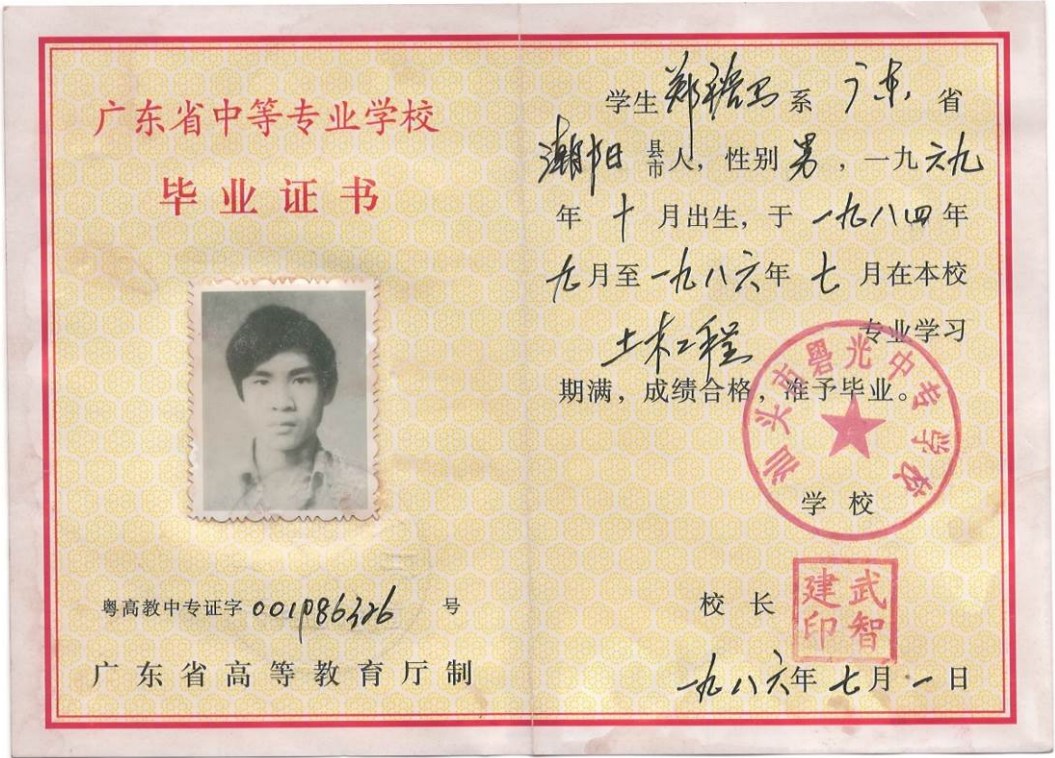 广东省中等专业学校
毕业证书
粤高教中专证字 001986326 号
广东省高等教育厅制
学生 郑 系 广东 省
潮阳 县市人，性别 男，一九六九
年 十 月出生，于 一九八四 年
九月至一九八六年 七 月在本校
土木工程 专业学习
期满，成绩合格，准予毕业。
汕头市礐光中专学校
学 校
校 长
武智建印
一九八六年七月一日